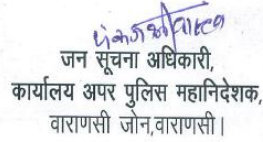 जन सूचना अधिकारी,
कार्यालय अपर पुलिस महानिदेशक,
वाराणसी जोन,वाराणसी।